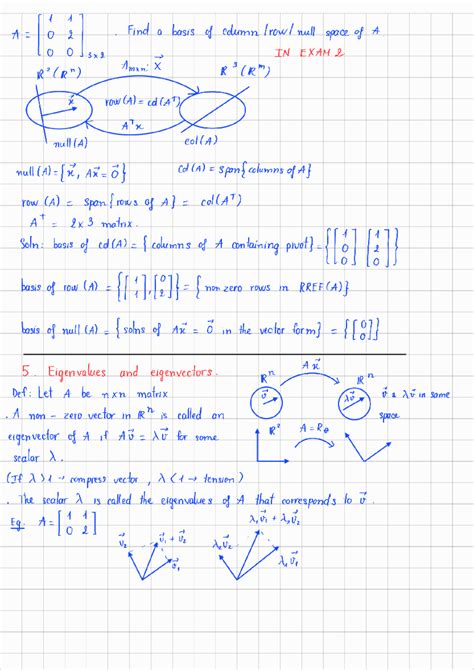 A = [1 1; 0 2; 0 0] 3x2 . Find a basis of column / row / null space of A
IN EXAM 2
R² (Rⁿ) A m×n: x⃗ R³ (Rᵐ)
x⃗ row(A) = col(Aᵀ)
Aᵀx
null(A) col(A)
null(A) = {x⃗, Ax⃗ = 0⃗} col(A) = span{columns of A}
row (A) = span{rows of A} = col(Aᵀ)
Aᵀ = 2x3 matrix.
Soln: basis of col(A) = {columns of A containing pivot} = {[1; 0; 0] [1; 2; 0]}
basis of row (A) = {[1; 1], [0; 2]} = {non zero rows in RREF(A)}
basis of null (A) = {solns of Ax⃗ = 0⃗ in the vector form} = {[0; 0]}
5. Eigenvalues and eigenvectors.
Def: Let A be nxn matrix
. A non-zero vector in Rⁿ is called an
eigenvector of A if Av⃗ = λv⃗ for some
scalar λ.
(If λ > 1 → compress vector, λ < 1 → tension)
. The scalar λ is called the eigenvalues of A that corresponds to v⃗.
Eg. A = [1 1; 0 2]
Ax⃗
Rⁿ Rⁿ
v⃗ λv⃗ v⃗ & λv⃗ in same
space
R² A = R_θ
v⃗₂ v⃗₁ + v⃗₂ v⃗₁
λ₁v⃗₁ + λ₂v⃗₂
λ₂v⃗₂ λ₁v⃗₁